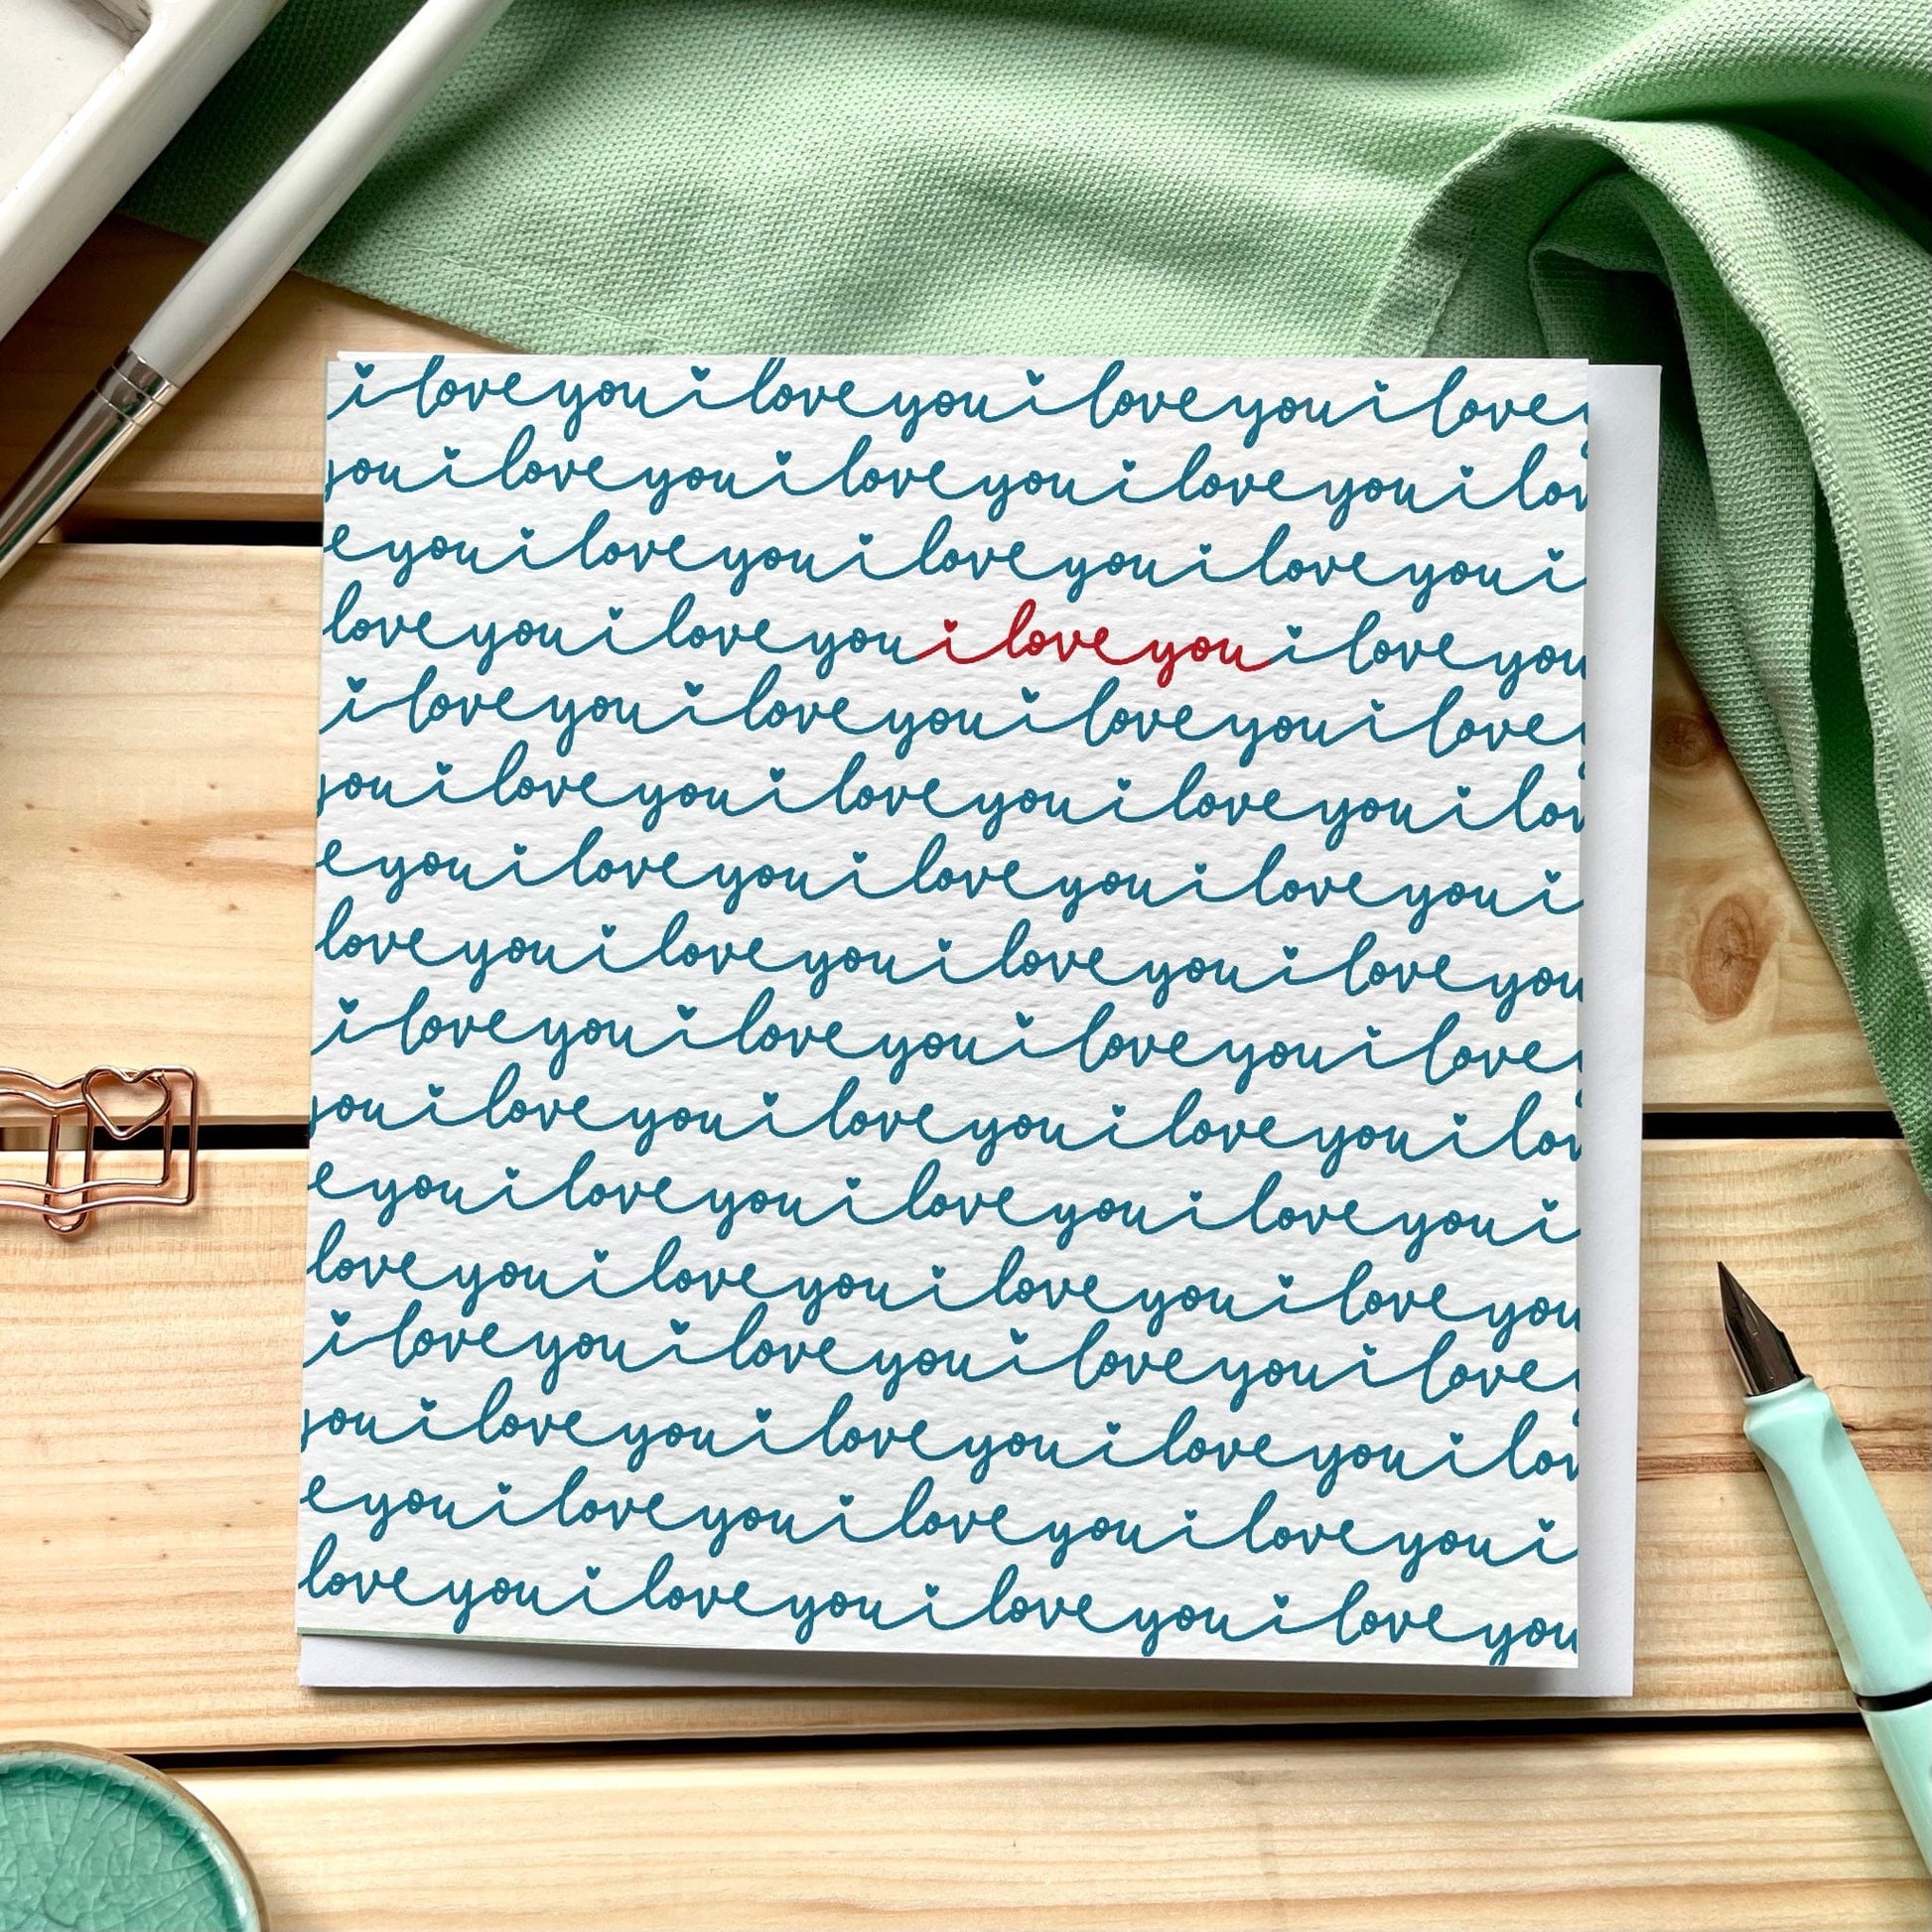 i love you i love you i love you i love
you i love you i love you i love you i lov
e you i love you i love you i love you i
love you i love you i love you i love you
i love you i love you i love you i love
you i love you i love you i love you i lov
e you i love you i love you i love you i
love you i love you i love you i love you
i love you i love you i love you i love
you i love you i love you i love you i lov
e you i love you i love you i love you i
love you i love you i love you i love you
i love you i love you i love you i love
you i love you i love you i love you i lov
e you i love you i love you i love you i
love you i love you i love you i love you